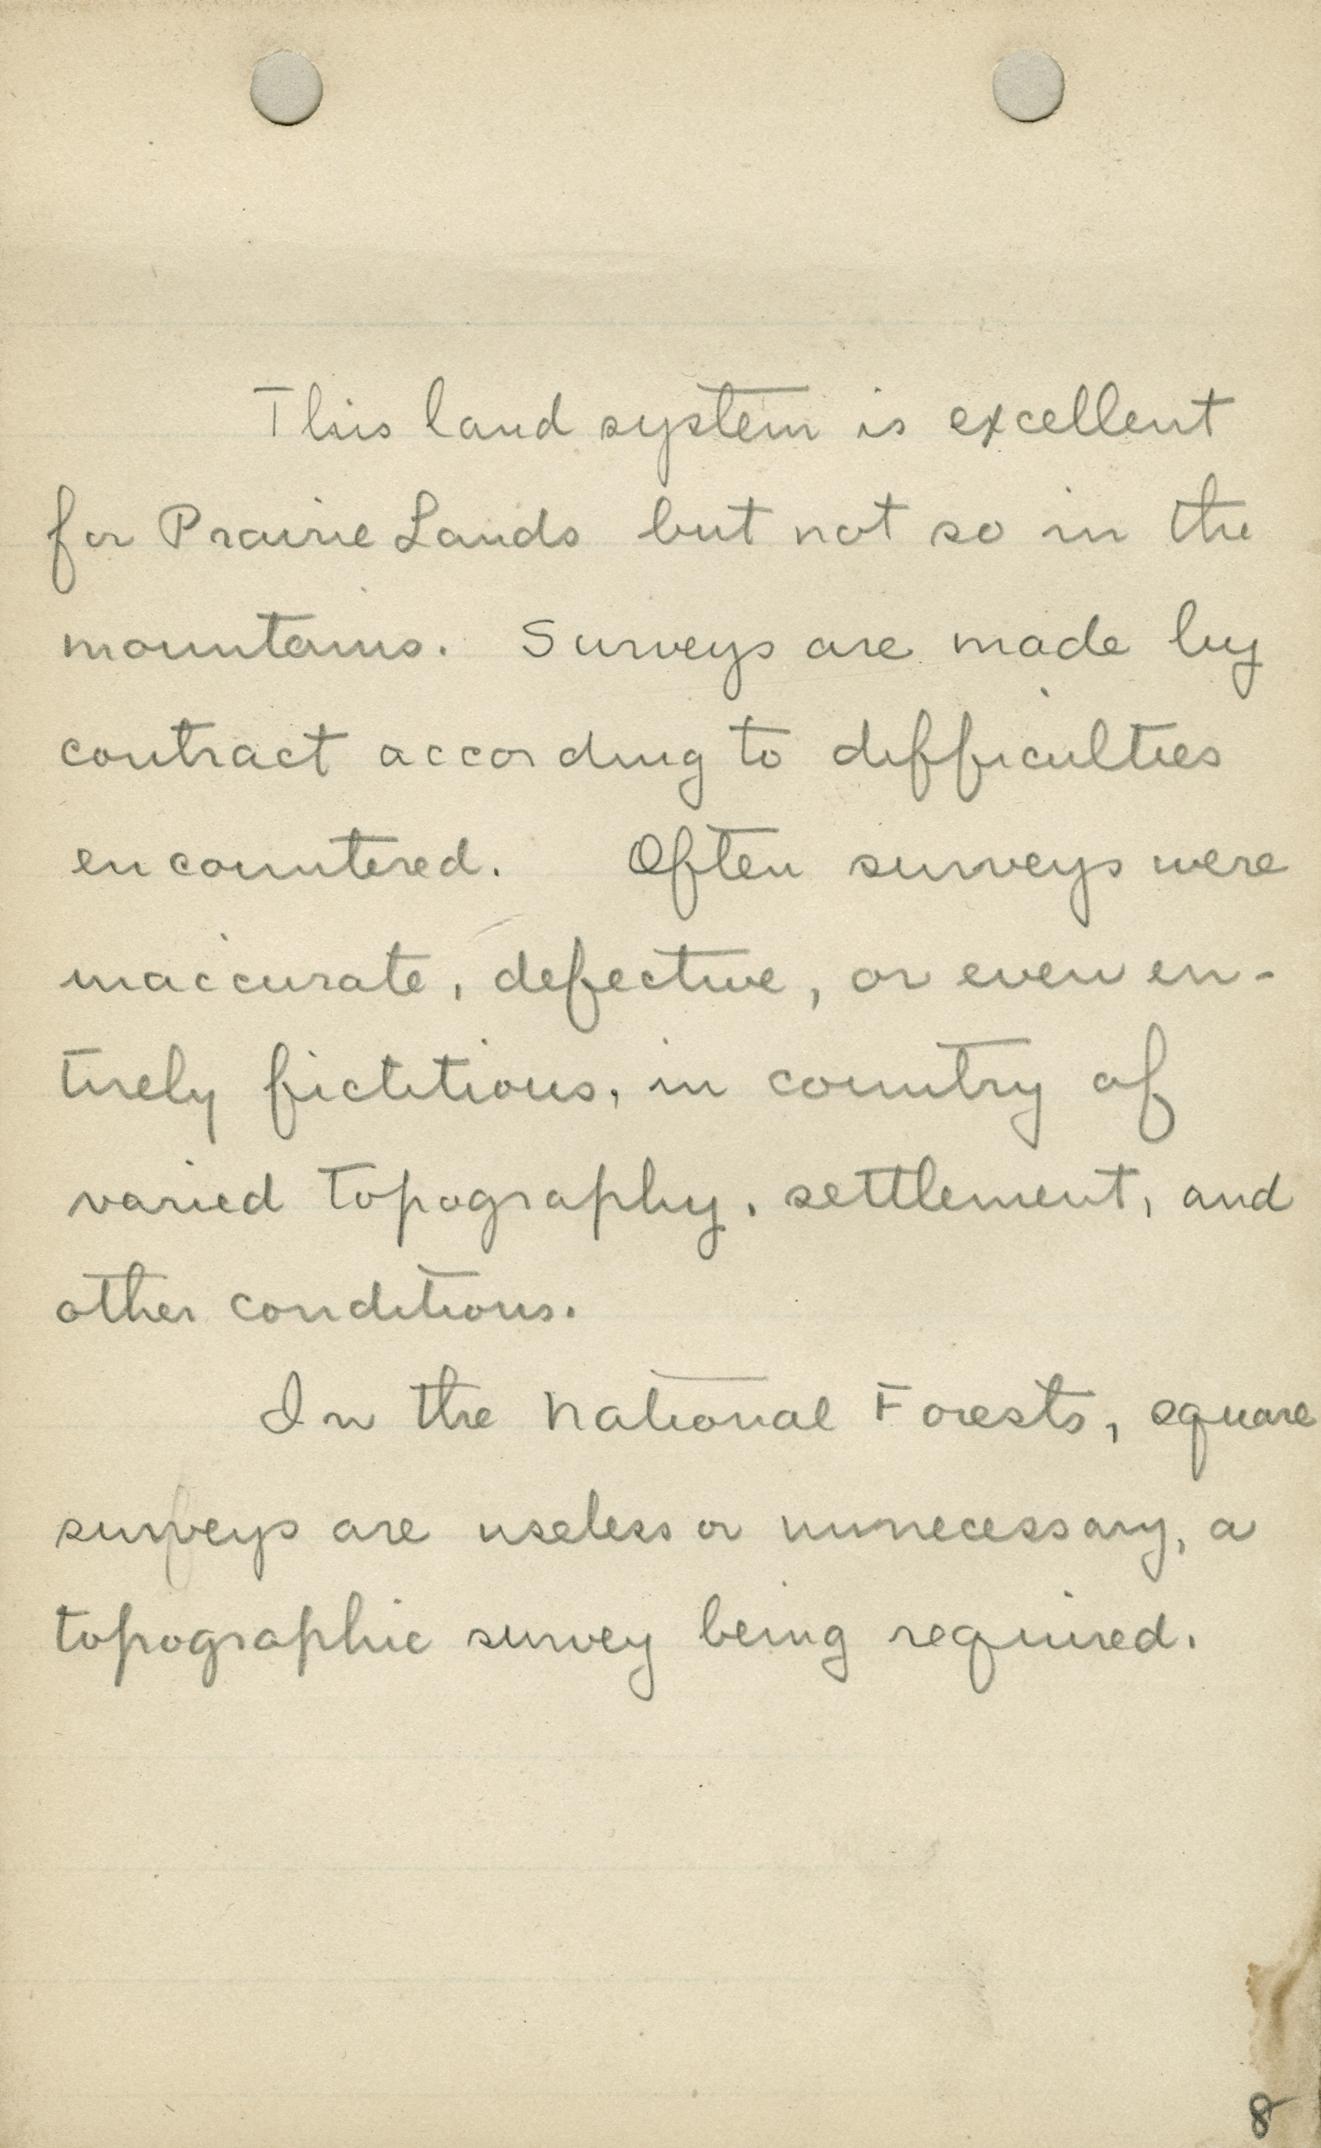 This land system is excellent
for Prairie Lands but not so in the
mountains. Surveys are made by
contract according to difficulties
encountered. Often surveys were
inaccurate, defective, or even en-
tirely fictitious, in country of
varied topography, settlement, and
other conditions.
In the National Forests, square
surveys are useless or unnecessary, a
topographic survey being required.
8